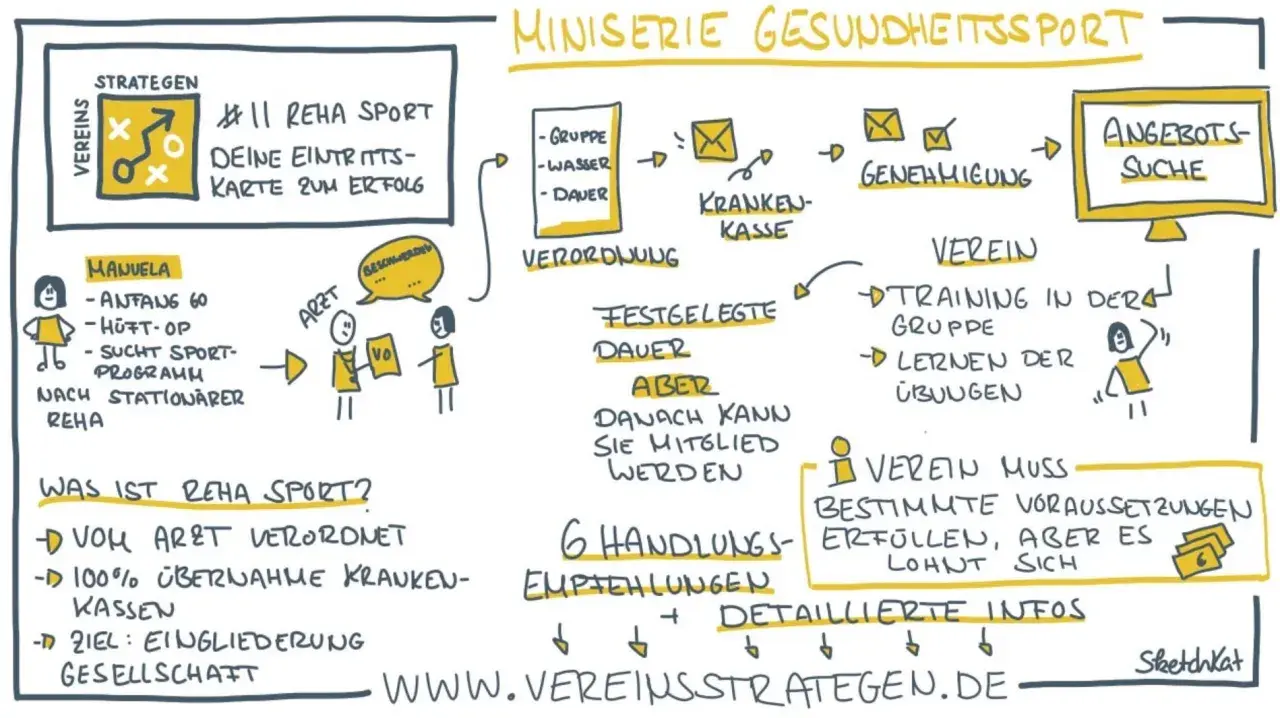 MINISERIE GESUNDHEITSSPORT
STRATEGEN
VEREINS
#11 REHA SPORT
DEINE EINTRITTS-
KARTE ZUM ERFOLG
MANUELA
- ANFANG 60
- HÜFT-OP
- SUCHT SPORT-
PROGRAMM
NACH STATIONÄRER
REHA
ARZT
BESCHWERDEN
... ...
VO
- GRUPPE
- WASSER
- DAUER
VERORDNUNG
KRANKEN-
KASSE
GENEHMIGUNG
ANGEBOTS-
SUCHE
VEREIN
TRAINING IN DER
GRUPPE
LERNEN DER
ÜBUNGEN
FESTGELEGTE
DAUER
ABER
DANACH KANN
SIE MITGLIED
WERDEN
WAS IST REHA SPORT?
VOM ARZT VERORDNET
100% ÜBERNAHME KRANKEN-
KASSEN
ZIEL: EINGLIEDERUNG
GESELLSCHAFT
i VEREIN MUSS
BESTIMMTE VORAUSSETZUNGEN
ERFÜLLEN, ABER ES
LOHNT SICH
€
6 HANDLUNGS-
EMPFEHLUNGEN
+ DETAILLIERTE INFOS
WWW.VEREINSSTRATEGEN.DE
SketchKat